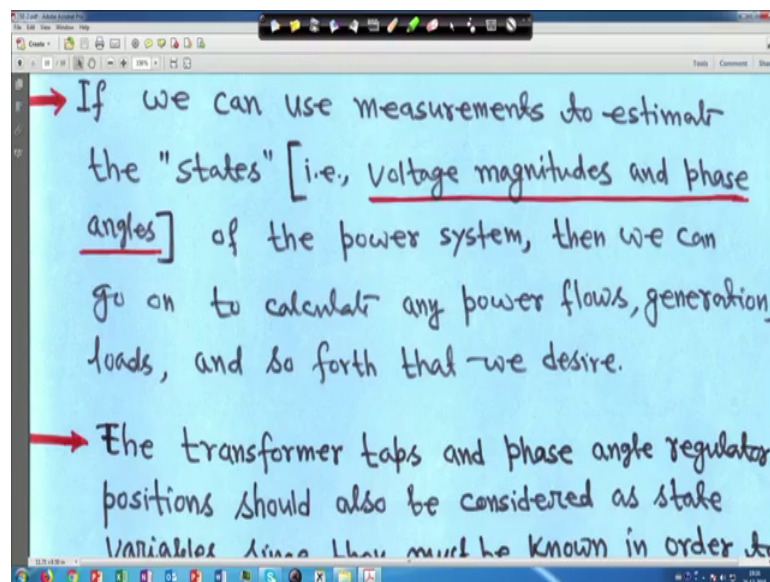 SE-2.pdf - Adobe Acrobat Pro
File Edit View Window Help
Create
Tools Comment Share
If we can use measurements to estimat
the "states" [i.e., voltage magnitudes and phase
angles] of the power system, then we can
go on to calculat any power flows, generation,
loads, and so forth that we desire.
The transformer taps and phase angle regulator
positions should also be considered as state
variables since they must be known in order to